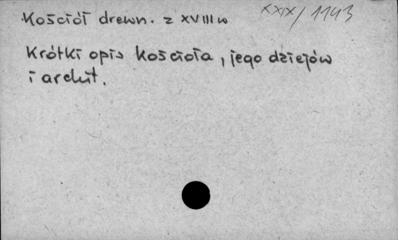 Kościół drewn. z XVIII w
XXIX/1143
Krótki opis kościoła, jego dziejów
i archit.